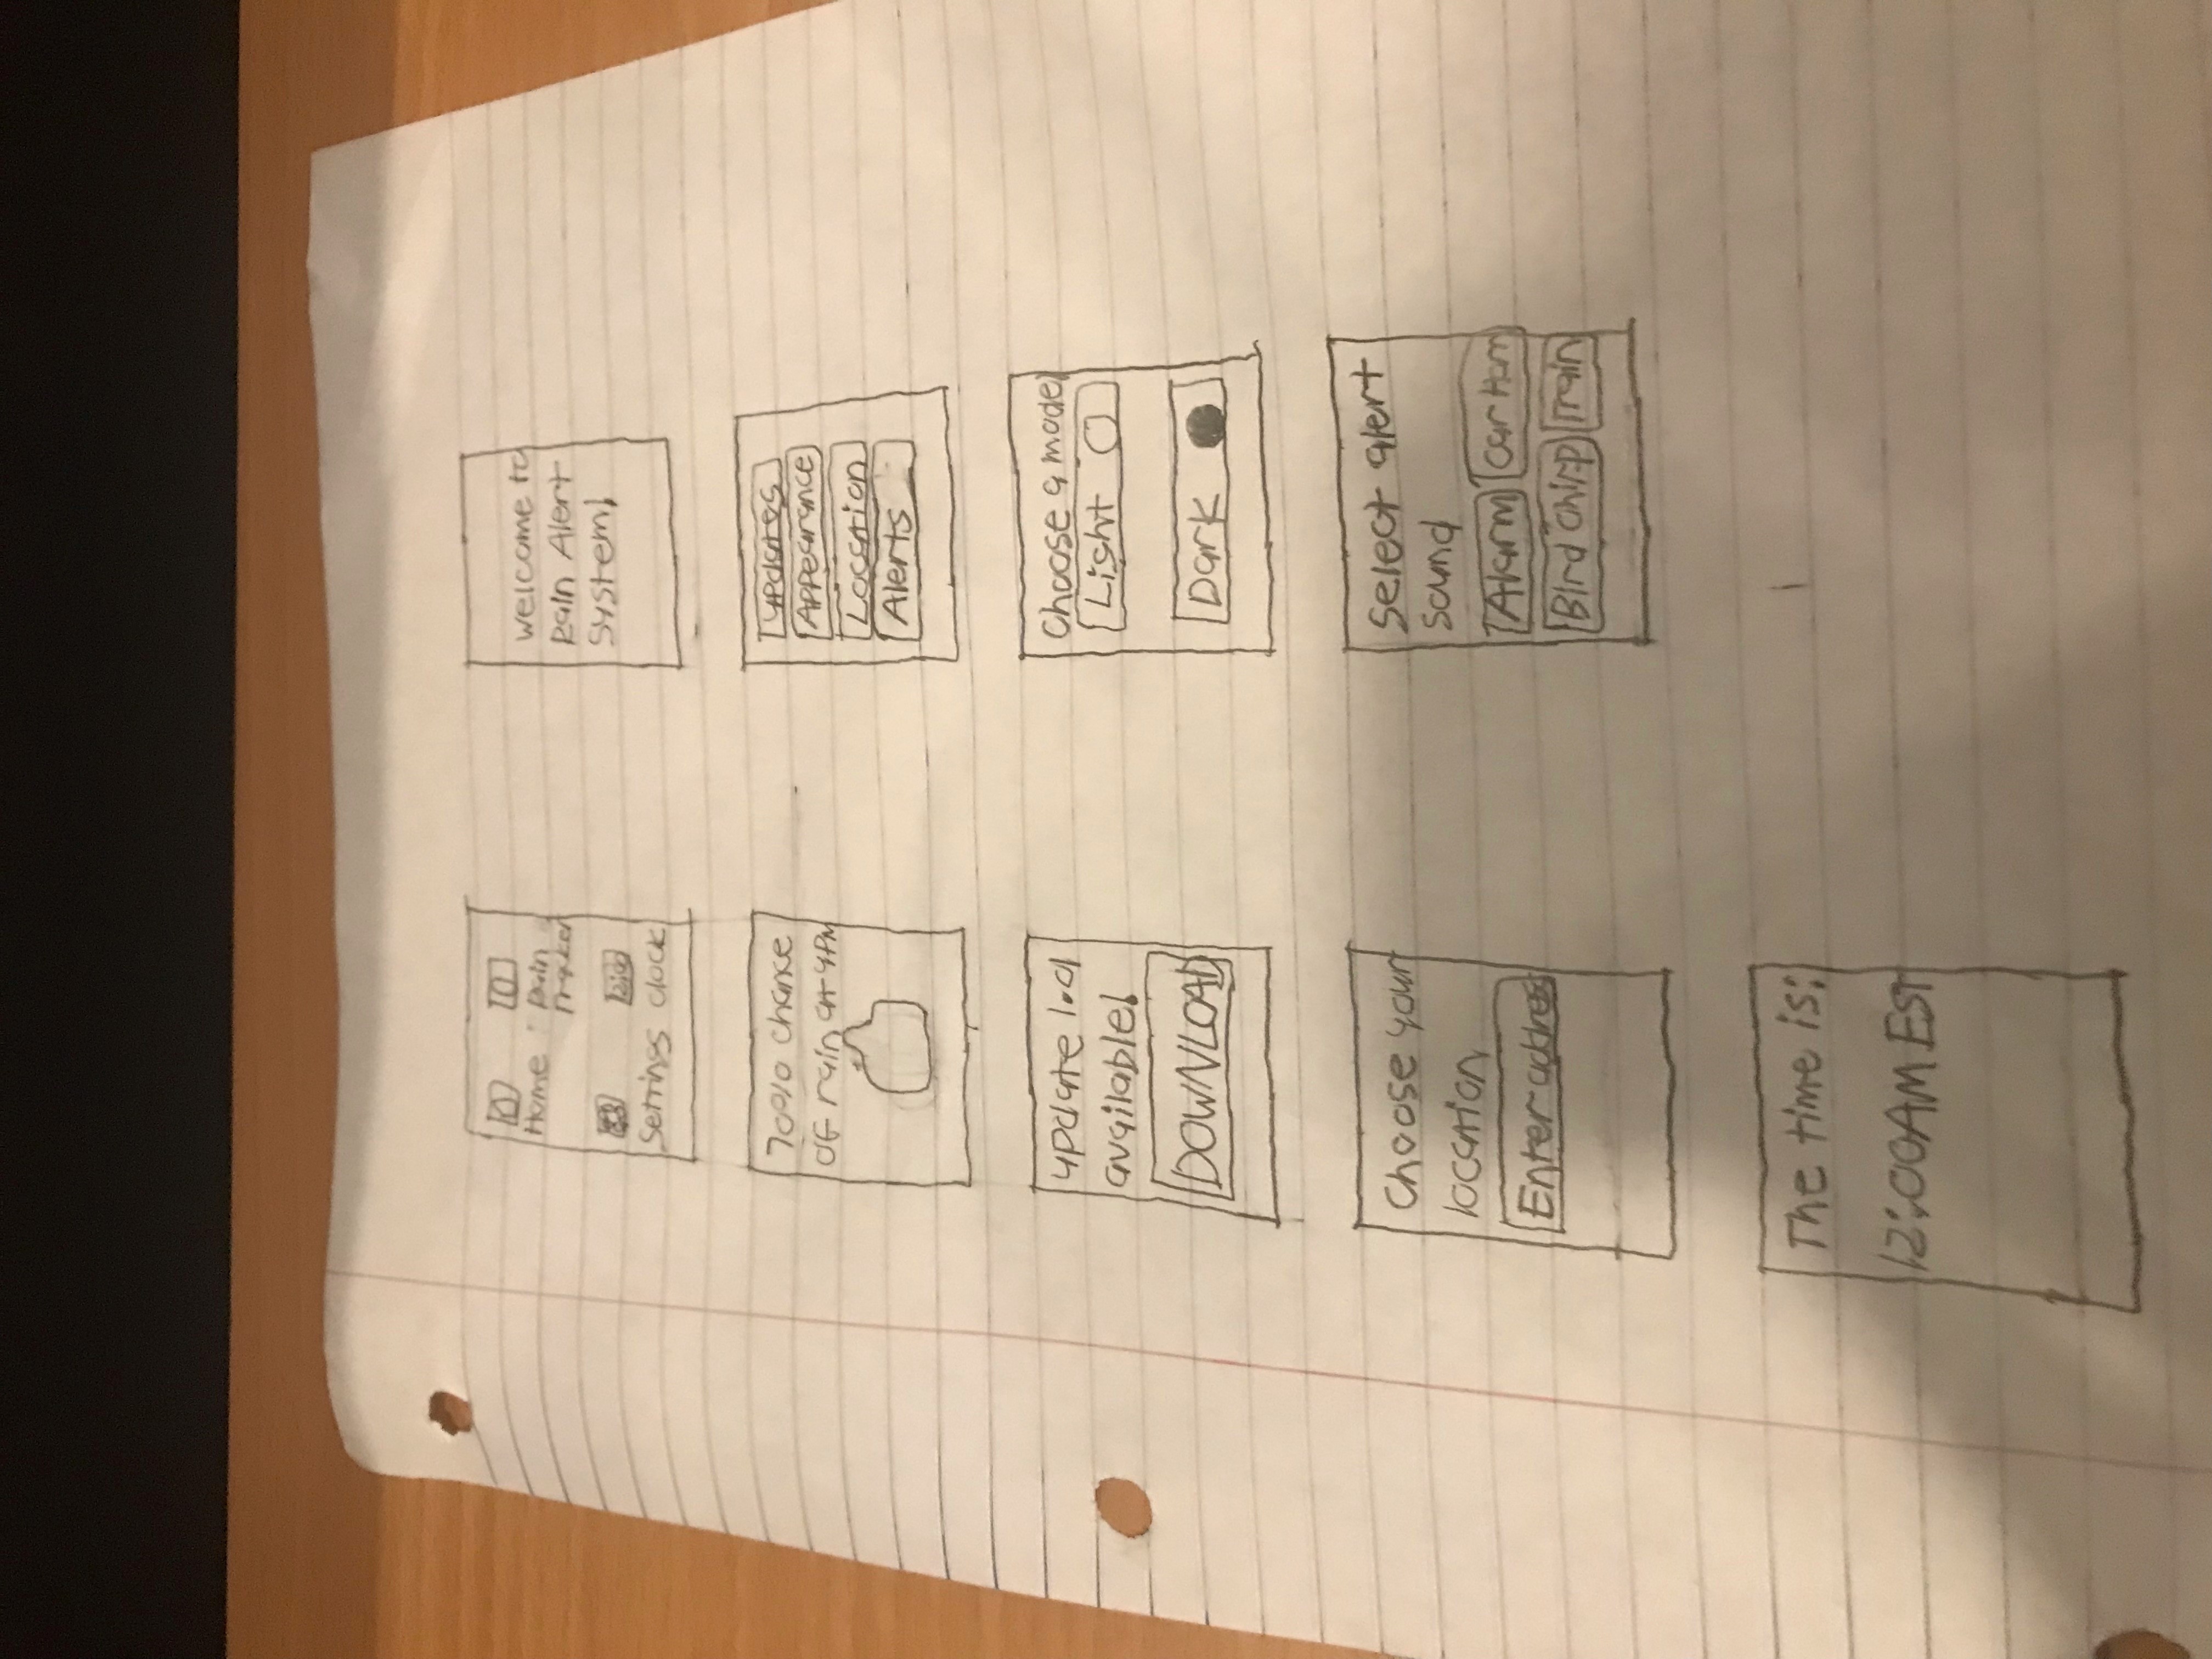 Home Rain
Tracker
12:00
Settings Clock
Welcome to
Rain Alert
System!
70% chance
of rain at 4PM
Updates
Appearance
Location
Alerts
Update 1.01
available!
DOWNLOAD
Choose a mode!
Light
Dark
Choose your
location
Enter address
Select alert
sound
Alarm Car Horn
Bird Chirp Train
The time is:
12:00AM EST